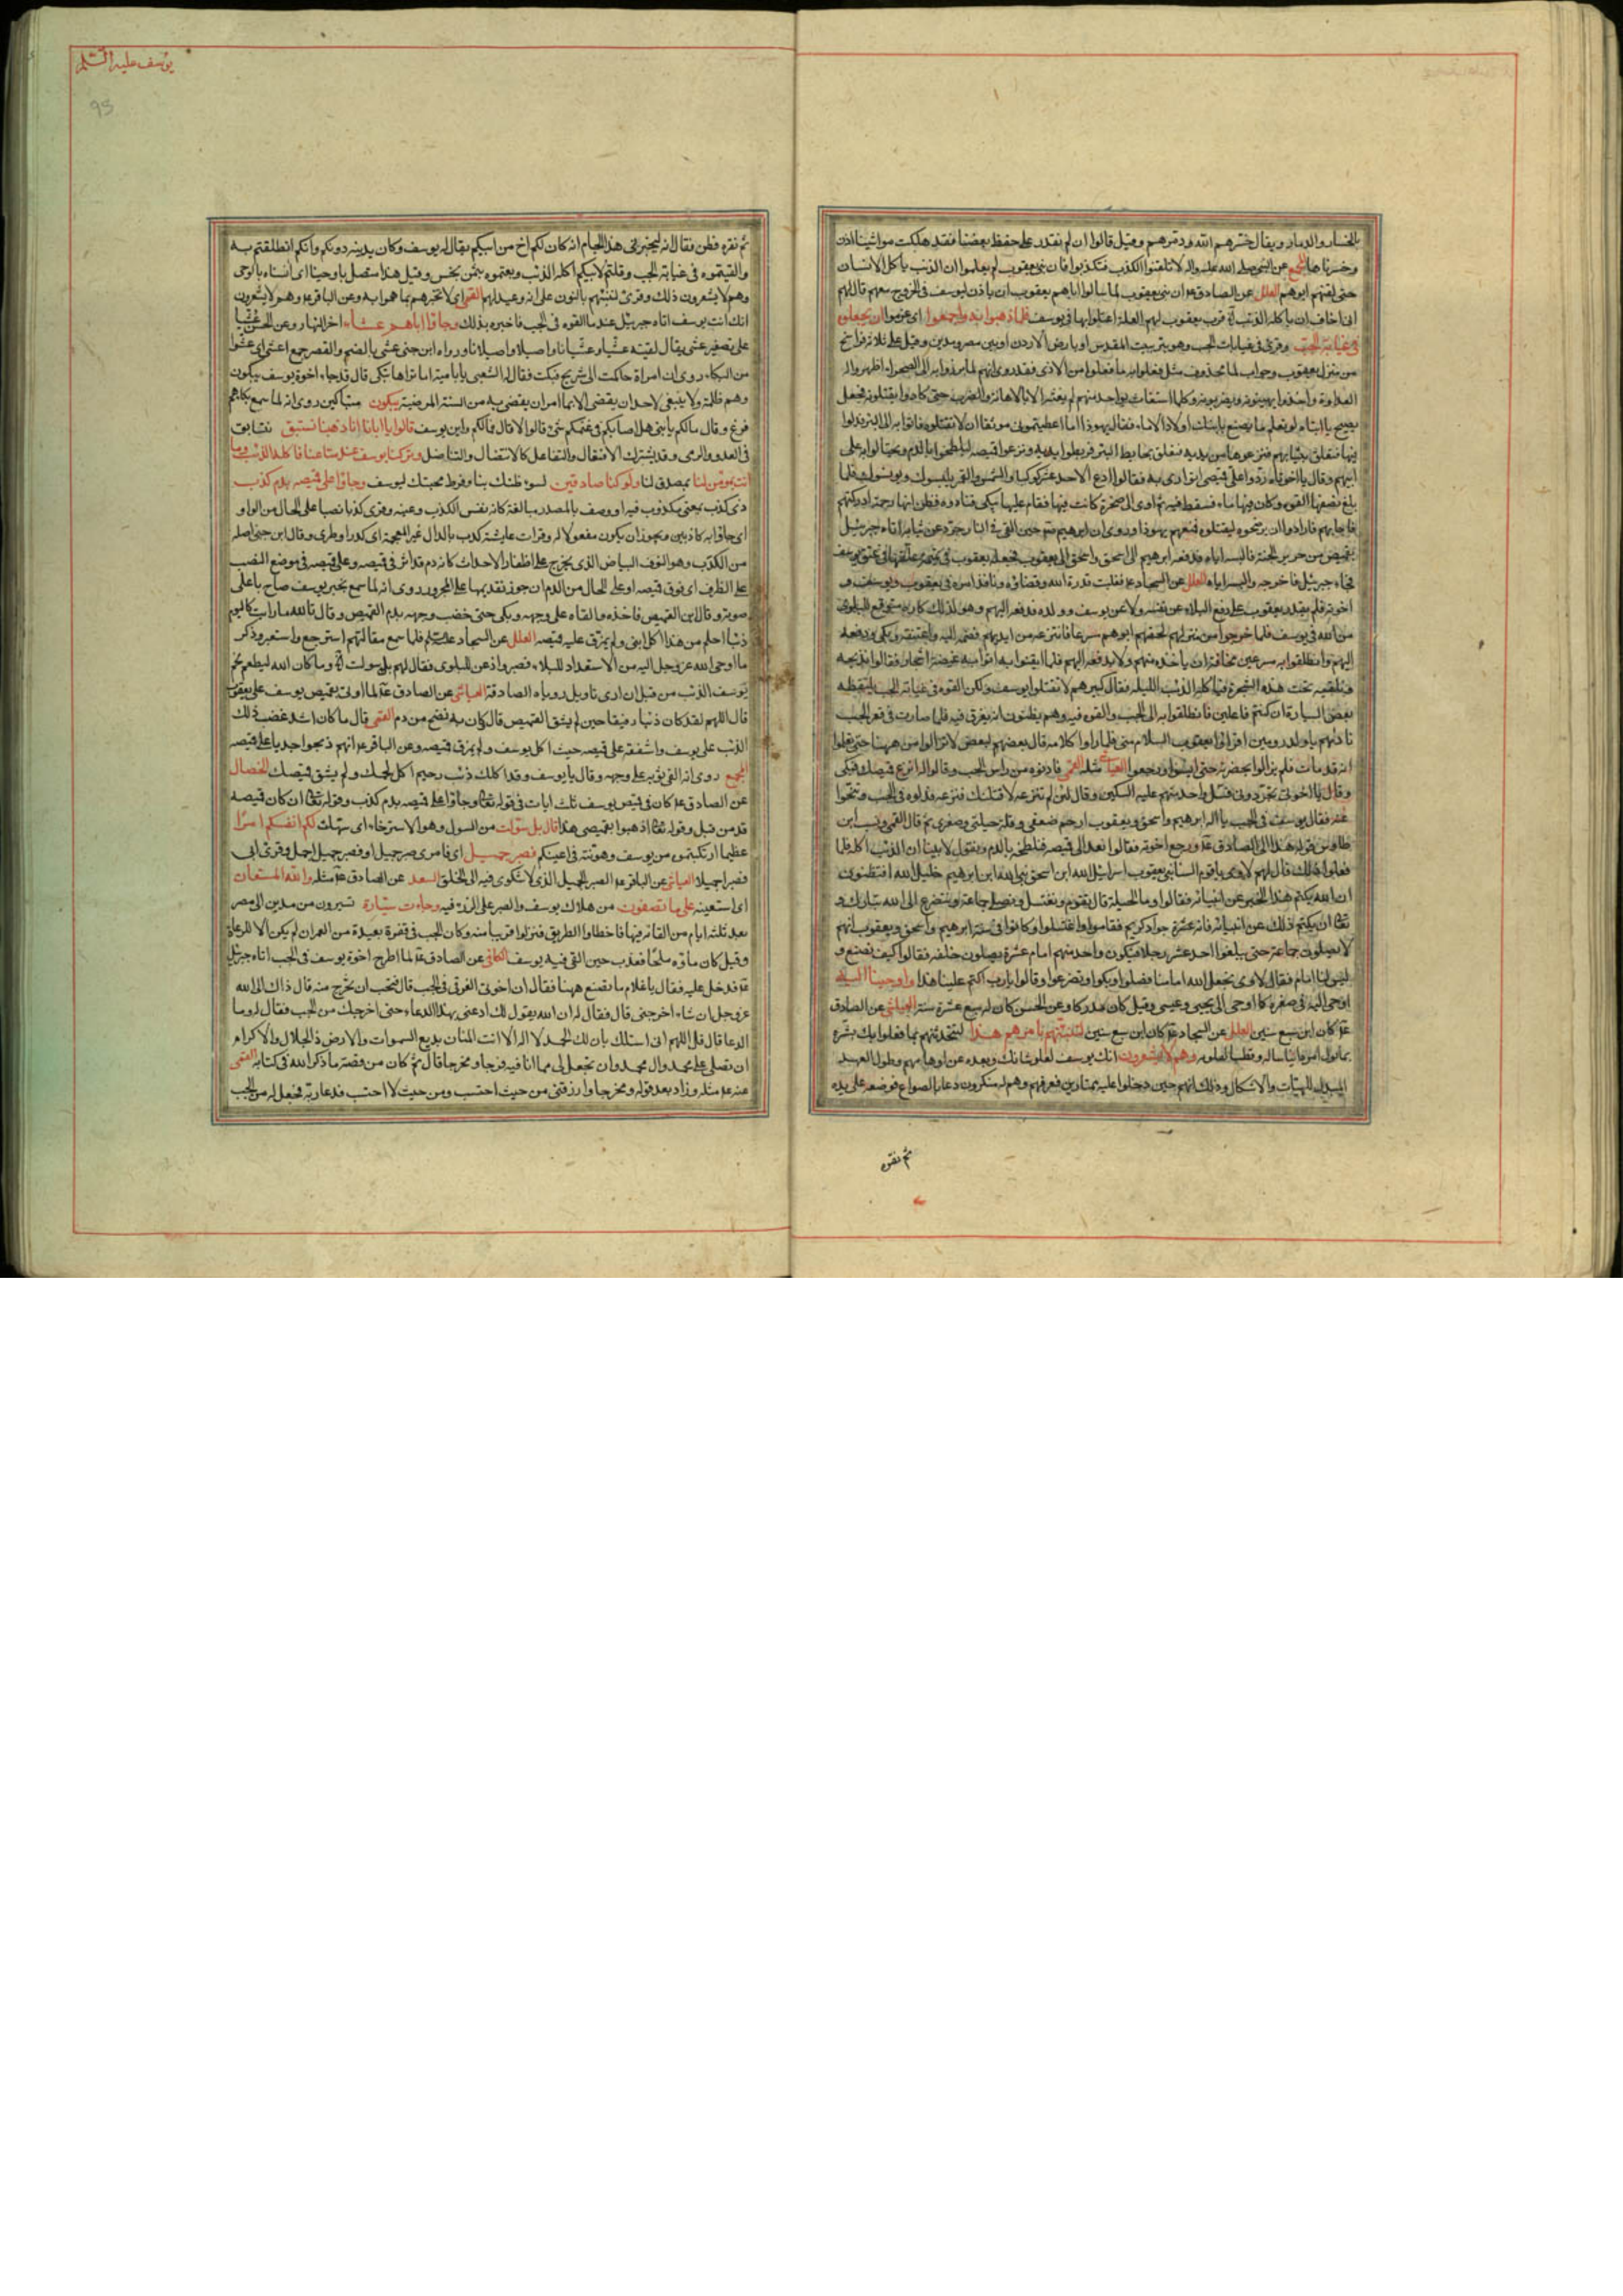 بالخسار والدمار ويقال خسرهم الله ودمرهم وقيل قالوا ان لم نقدر على حفظ بعضنا فقد هلكت مواشينا اذن
وخسرناها المجمع عن النبي صلى الله عليه واله لا تلقنوا الكذب فتكذبوا فان بني يعقوب لم يعلموا ان الذئب ياكل الانسان
حتى لقنهم ابوهم العلل عن الصادق ان بني يعقوب لما سالوا اباهم يعقوب ان ياذن ليوسف في الخروج معهم قال لهم
اني اخاف ان ياكله الذئب قرب يعقوب لهم العلة اعتلوا بها في يوسف فلما ذهبوا به واجمعوا اي عزموا ان يجعلوه
في غيابة الجب وقرئ في غيابات الجب وهو بئر بيت المقدس او بارض الاردن او بين مصر ومدين وقيل على ثلاثة فراسخ
من منزل يعقوب وجواب لما محذوف مثل فعلوا به ما فعلوا من الاذى فقد روي انهم لما برزوا به الى الصحراء اظهروا له
العداوة واخذوا يهينونه ويضربونه وكلما استغاث بواحد منهم لم يغثه الا بالاهانة والضرب حتى كادوا يقتلونه فجعل
يصيح يا ابتاه لو تعلم ما يصنع بابنك اولاد الاماء فقال يهوذا اما اعطيتموني موثقا ان لا تقتلوه فاتوا به الى البئر فدلوه
فيها فتعلق بثيابهم فنزعوها من يديه فتعلق بحايط البئر فربطوا يديه ونزعوا قميصه ليلطخوا بالدم ويحتالوا به على
ابيهم وقال يا اخوتاه ردوا علي قميصي اتوارى به فقالوا ادع الاحد عشر كوكبا والشمس والقمر يلبسوك ويونسوك فلما
بلغ نصفها القوه وكان فيها ماء فسقط فيه ثم اوى الى صخرة كانت فيها فقام عليها يبكي فنادوه فظن انها رحمة ادركتهم
فاجابهم فارادوا ان يرضخوه ليقتلوه فمنعهم يهوذا وروي ان ابرهيم حين القي في النار جرد عن ثيابه اتاه جبرئيل
بقميص من حرير الجنة فالبسه اياه فدفعه ابرهيم الى اسحق واسحق الى يعقوب فجعله يعقوب في تميمة علقها في عنق يوسف
فجاء جبرئيل فاخرجه والبسه اياه العلل عن السجاد فغلبت قدرة الله وقضاؤه ونافذ امره في يعقوب ويوسف و
اخوته فلم يقدر يعقوب على دفع البلاء عن نفسه ولا عن يوسف وولده فدفعه اليهم وهو لذلك كاره متوقع للبلوى
من الله في يوسف فلما خرجوا من منزلهم لحقهم ابوهم سرعا فانتزعه من ايديهم فضمه اليه واعتنقه وبكى ودفعه
اليهم وانطلقوا به مسرعين مخافة ان ياخذه منهم ولا يدفعه اليهم فلما ايقنوا به اتوا به غيضة اشجار فقالوا نذبحه
ونلقيه تحت هذه الشجرة فياكله الذئب الليلة فقال كبيرهم لا تقتلوا يوسف ولكن القوه في غيابة الجب يلتقطه
بعض السيارة ان كنتم فاعلين فانطلقوا به الى الجب والقوه فيه وهم يظنون انه يغرق فيه فلما صارت في قعر الجب
ناداهم يا ولد رومين اقرؤا يعقوب السلام مني فلما راوا كلامه قال بعضهم لبعض لا تزالوا من ههنا حتى تعلموا
انه قد مات فلم يزالوا بحضرته حتى ايسوا ورجعوا العياشي مثله القمي فادنوه من راس الجب وقالوا له انزع قميصك فبكى
وقال يا اخوتي تجردوني فسل واحد منهم عليه السكين وقال لئن لم تنزعه لاقتلنك فنزعه فدلوه في الجب وتنحوا
عنه فقال يوسف في الجب يا اله ابرهيم واسحق ويعقوب ارحم ضعفي وقلة حيلتي وصغري ثم قال القمي ونسب ابن
طاوس قوله هذا الى الصادق ورجع اخوته فقالوا نعمد الى قميصه فنلطخه بالدم ونقول لابينا ان الذئب اكله فلما
فعلوا ذلك قال لهم لاوي يا قوم السنا بني يعقوب اسرائيل الله ابن اسحق نبي الله ابن ابرهيم خليل الله افتظنون
ان الله يكتم هذا الخبر عن انبيائه فقالوا وما الحيلة قال نقوم ونغتسل ونصلي جماعة ونتضرع الى الله تبارك و
تعالى ان يكتم ذلك عن انبيائه فانه جواد كريم فقاموا واغتسلوا وكانوا في سنة ابرهيم واسحق ويعقوب انهم
لا يصلون جماعة حتى يبلغوا احد عشر رجلا فيكون واحد منهم امام عشرة يصلون خلفه فقالوا كيف نصنع و
ليس لنا امام فقال لاوي نجعل الله امامنا فصلوا وبكوا وتضرعوا وقالوا يا رب اكتم علينا هذا واوحينا اليه
اوحي اليه في صغره كما اوحي الى يحيى وعيسى وقيل كان مدركا وعن الحسن كان له سبع عشرة سنة العياشي عن الصادق
كان ابن سبع سنين العلل عن السجاد كان ابن سبع سنين لتنبئنهم بامرهم هذا لتحدثنهم بما فعلوا بك بشره
بما يؤل امره وهم لا يشعرون انك يوسف لعلو شانك وبعده عن اوهامهم وطول العهد
المبدل للهيئات والاشكال وذلك انهم حين دخلوا عليه ممتارين فعرفهم وهم له منكرون دعا بالصواع فوضعه على يده
ثم نقره
يوسف عليه السلم
95
ثم نقره فطن فقال انه ليخبرني هذا الجام انه كان لكم اخ من ابيكم يقال له يوسف وكان يدنيه دونكم وانكم انطلقتم به
والقيتموه في غيابة الجب وقلتم لابيكم اكله الذئب وبعتموه بثمن بخس وقيل هذا متصل باوحينا اي انسناه بالوحي
وهم لا يشعرون ذلك وقرئ لننبئنهم بالنون على انه وعيد لهم القمي اي لا تخبرهم بما هموا به وعن الباقر وهم لا يشعرون
انك انت يوسف اتاه جبرئيل عند ما القوه في الجب فاخبره بذلك وجاؤا اباهم عشاء اخر النهار وعن الحسن عشيا
على تصغير عشي يقال لقيته عشيا وعشيانا واصيلا واصيلانا ورواه ابن جني عشى بالضم والقصر جمع اعشى اي عشوا
من البكاء روي ان امراة حاكمت الى شريح فبكت فقال له الشعبي يا با امية اما تراها تبكي قال قد جاء اخوة يوسف يبكون
وهم ظلمة ولا ينبغي لاحد ان يقضي الا بما امر ان يقضي به من السنة المرضية يبكون متباكين روي انه لما سمع بكاءهم
فزع وقال ما لكم يا بني هل اصابكم في غنمكم شئ قالوا لا قال فما لكم واين يوسف قالوا يا ابانا انا ذهبنا نستبق نتسابق
في العدو والرمي وقد يشترك الافتعال والتفاعل كالانتضال والتناضل وتركنا يوسف عند متاعنا فاكله الذئب وما
انت بمؤمن لنا بمصدق لنا ولو كنا صادقين لسوء ظنك بنا وفرط محبتك ليوسف وجاؤا على قميصه بدم كذب
ذي كذب بمعنى مكذوب فيه او وصف بالمصدر مبالغة كانه نفس الكذب وعينه وقرئ كذبا نصبا على الحال من الواو
اي جاؤا به كاذبين ويجوز ان يكون مفعولا له وقرات عايشة كدب بالدال غير المعجمة اي كدر او طري وقال ابن جني اصله
من الكدب وهو الفوف البياض الذي يخرج على اظفار الاحداث كانه دم قد اثر في قميصه وعلى قميصه في موضع النصب
على الظرف اي فوق قميصه او على الحال من الدم ان جوز تقديمها على المجرور روي انه لما سمع بخبر يوسف صاح باعلى
صوته وقال اين القميص فاخذه والقاه على وجهه وبكى حتى خضب وجهه بدم القميص وقال تالله ما رايت كاليوم
ذئبا احلم من هذا اكل ابني ولم يمزق عليه قميصه العلل عن السجاد فلما سمع مقالتهم استرجع واستعبر وذكر
ما اوحى الله عز وجل اليه من الاستعداد للبلاء فصبر واذعن للبلوى فقال لهم بل سولت لكم وما كان الله ليطعم لحم
يوسف الذئب من قبل ان ارى تاويل رؤياه الصادقة العياشي عن الصادق لما اوتي بقميص يوسف على يعقوب
قال اللهم لقد كان ذئبا رفيقا حين لم يشق القميص قال كان به نضح من دم القمي قال ما كان اشد غضب ذلك
الذئب على يوسف واشفقه على قميصه حيث اكل يوسف ولم يمزق قميصه وعن الباقر انهم ذبحوا جديا على قميصه
المجمع روي انه القى ثوبه على وجهه وقال يا يوسف لقد اكلك ذئب رحيم اكل لحمك ولم يشق قميصك الخصال
عن الصادق كان في قميص يوسف ثلث ايات في قوله تعالى وجاؤا على قميصه بدم كذب وقوله تعالى ان كان قميصه
قد من قبل وقوله تعالى اذهبوا بقميصي هذا قال بل سولت من السول وهو الاسترخاء اي سهلت لكم انفسكم امرا
عظيما ارتكبتموه من يوسف وهونته في اعينكم فصبر جميل اي فامري صبر جميل او فصبر جميل اجمل وقرئ ابي
فصبرا جميلا العياشي عن الباقر الصبر الجميل الذي لا شكوى فيه الى الخلق السعد عن الصادق مثله والله المستعان
اي استعينه على ما تصفون من هلاك يوسف والصبر على الرزء فيه وجاءت سيارة تسيرون من مدين الى مصر
بعد ثلثة ايام من القائه فيها فاخطاوا الطريق فنزلوا قريبا منه وكان الجب في قفرة بعيدة من العمران لم يكن الا للرعاة
وقيل كان ماؤه ملحا فعذب حين القي فيه يوسف الكافي عن الصادق لما طرح اخوة يوسف في الجب اتاه جبرئيل
فدخل عليه فقال يا غلام ما تصنع ههنا فقال ان اخوتي القوني في الجب قال فتحب ان تخرج منه قال ذاك الى الله
عز وجل ان شاء اخرجني قال فقال له ان الله يقول لك ادعني بهذا الدعاء حتى اخرجك من الجب فقال له وما
الدعا قال قل اللهم اني اسئلك بان لك الحمد لا اله الا انت المنان بديع السموات والارض ذا الجلال والاكرام
ان تصلي على محمد وال محمد وان تجعل لي مما انا فيه فرجا ومخرجا قال ثم كان من قصته ما ذكر الله في كتابه القمي
عنه مثله وزاد بعد قوله ومخرجا وارزقني من حيث احتسب ومن حيث لا احتسب فدعا ربه فجعل له من الجب